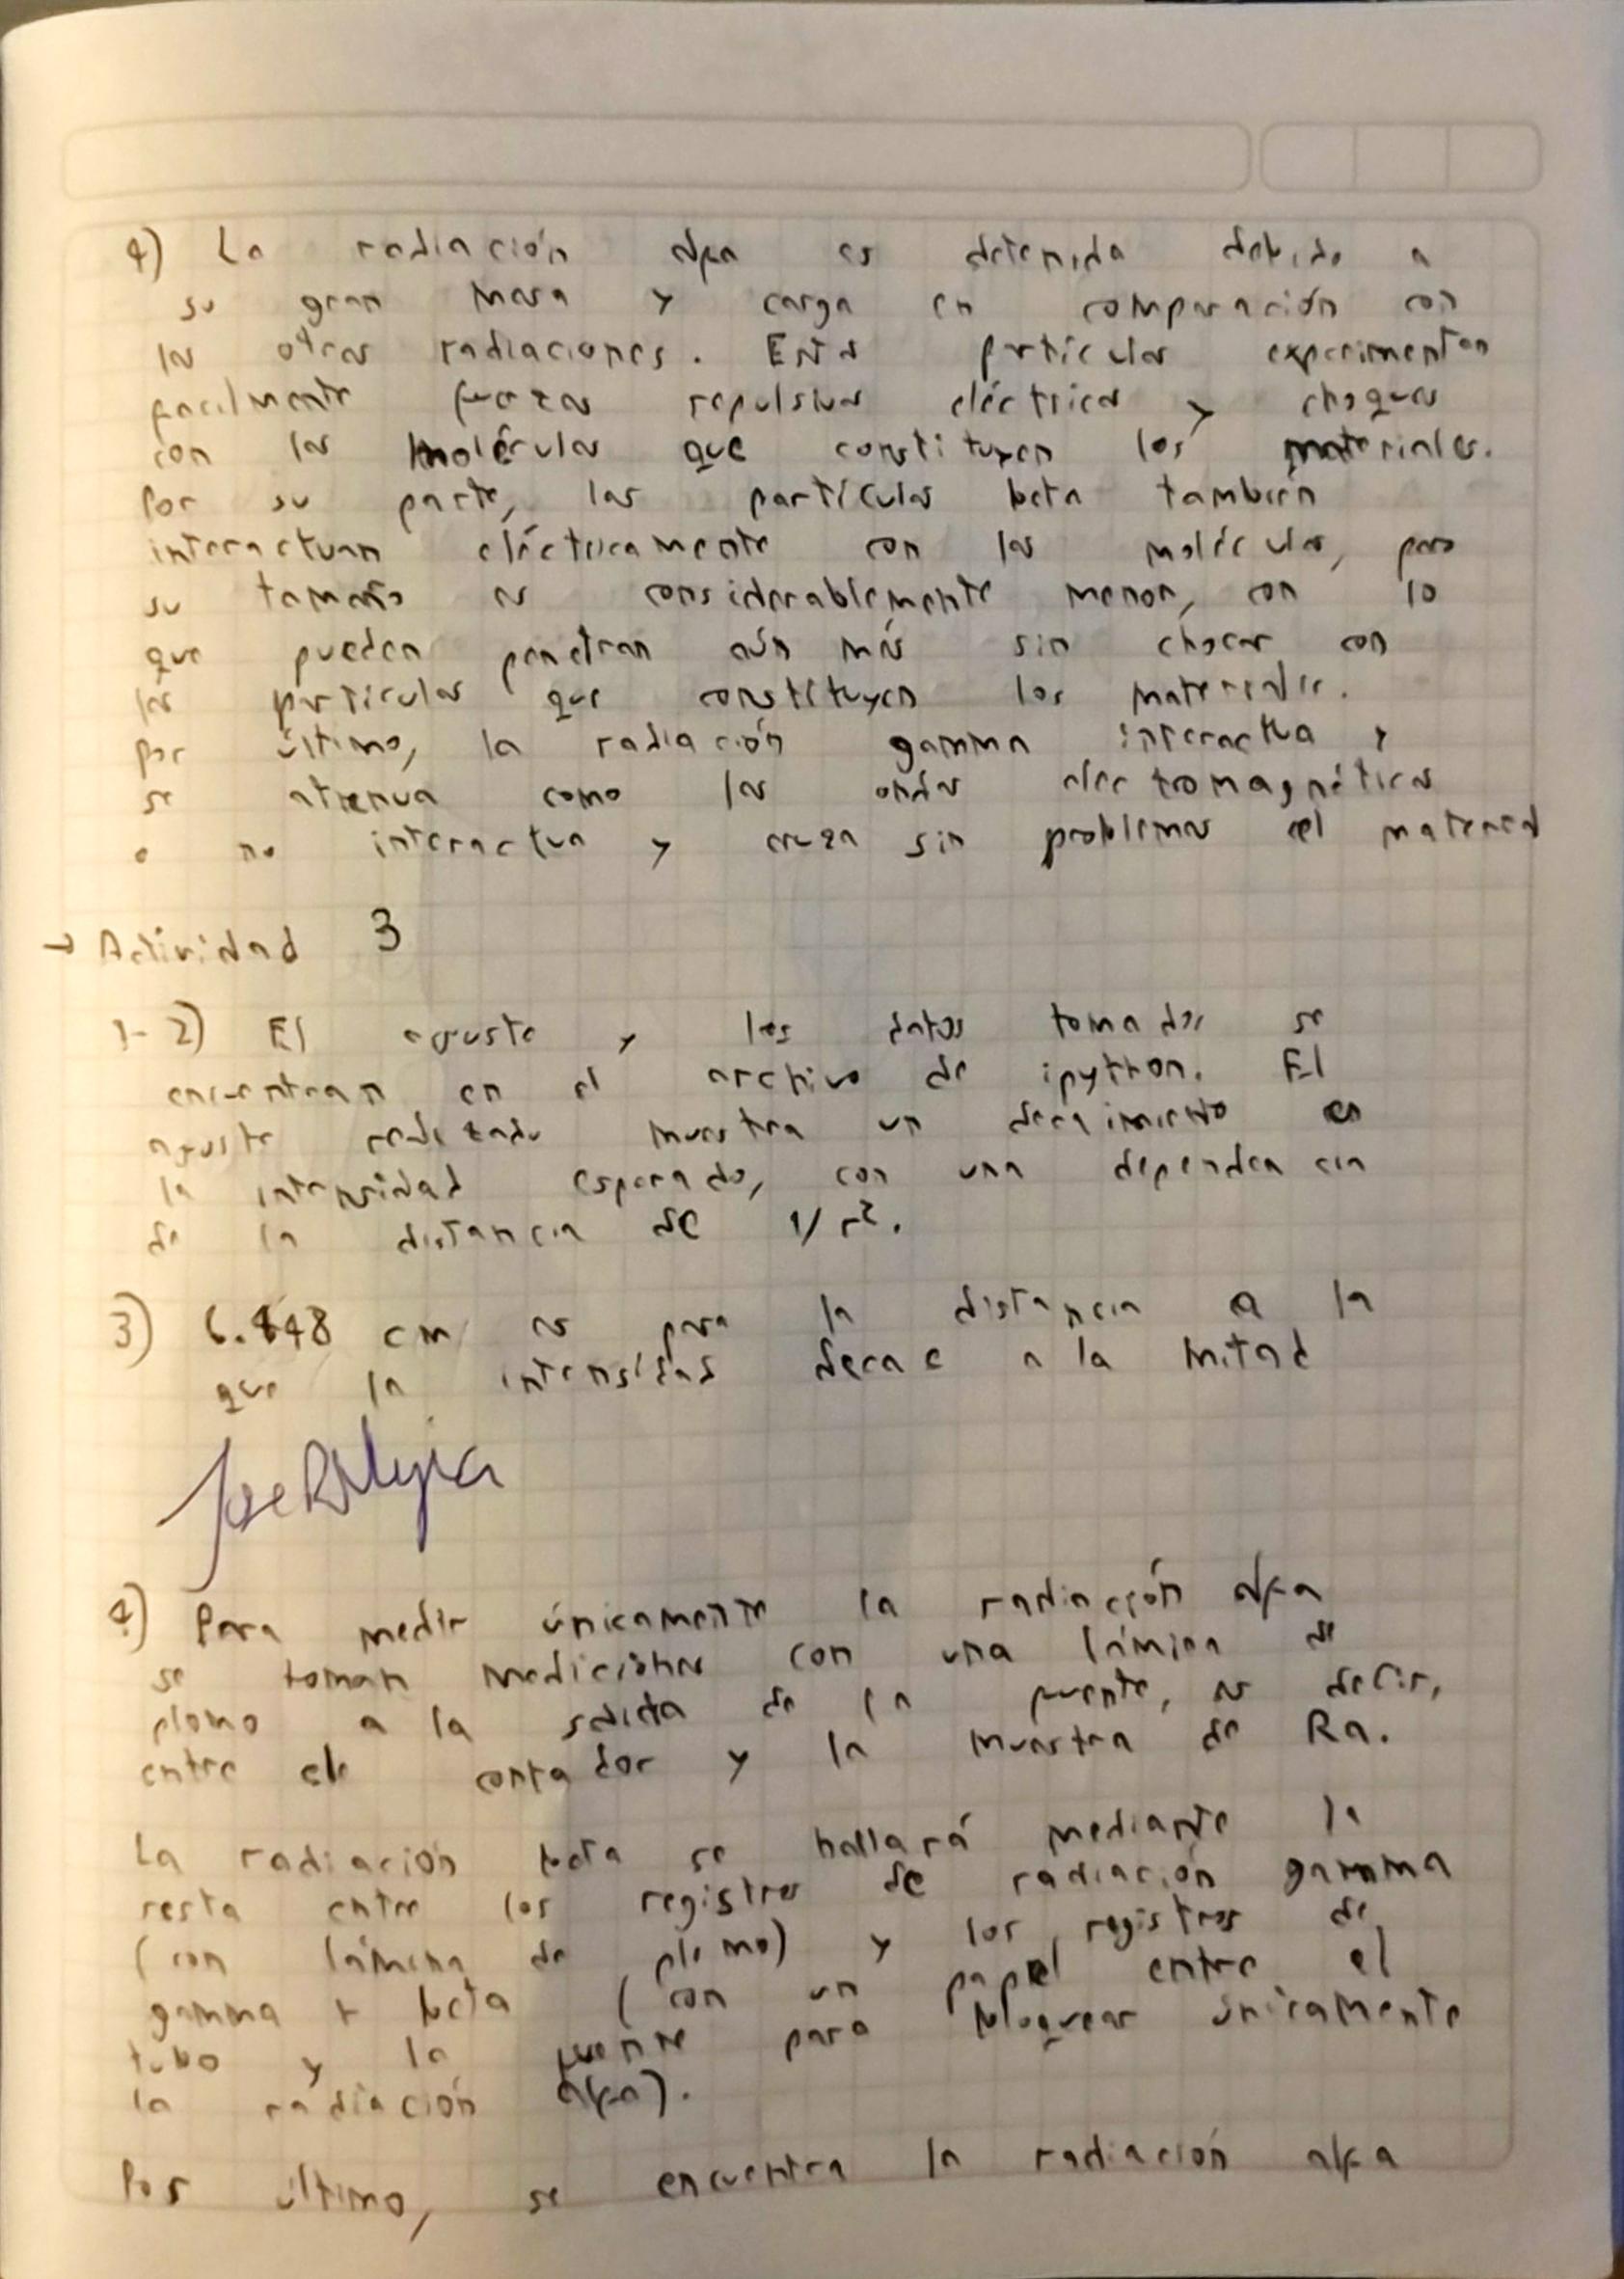 4) La radiación alfa es detenida debido a
su gran masa y carga en comparación con
las otras radiaciones. Estas partículas experimentan
facilmente fuerzas repulsivas eléctricas y choques
con las moléculas que constituyen los materiales.
Por su parte, las partículas beta también
interactuan eléctricamente con las moléculas, pero
su tamaño es considerablemente menor, con lo
que pueden penetran aún más sin chocar con
las partículas que constituyen los materiales.
por último, la radiación gamma interactua y
se atenua como las ondas electromagnéticas
o no interactua y cruza sin problemas el material
→ Actividad 3
1-2) El ajuste y los datos tomados se
encuentran en el archivo de ipython. El
ajuste realizado muestra un decaimiento en
la intensidad esperado, con una dependencia
de la distancia de 1/r².
3) 6.448 cm es para la distancia a la
que la intensidad decae a la mitad
4) Para medir únicamente la radiación alfa
se toman mediciones con una lámina de
plomo a la salida de la fuente, es decir,
entre el contador y la muestra de Ra.
La radiación beta se hallará mediante la
resta entre los registros de radiación gamma
(con lámina de plomo) y los registros de
gamma + beta (con un papel entre el
tubo y la fuente para bloquear únicamente
la radiación alfa).
Por último, se encuentra la radiación alfa